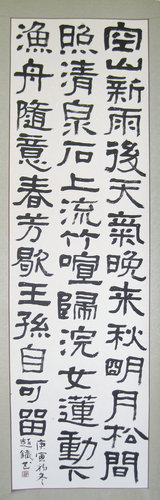 空山新雨後天氣晚来秋明月松間
照清泉石上流竹喧歸浣女蓮動下
漁舟隨意春芳歇王孫自可留
庚寅初冬